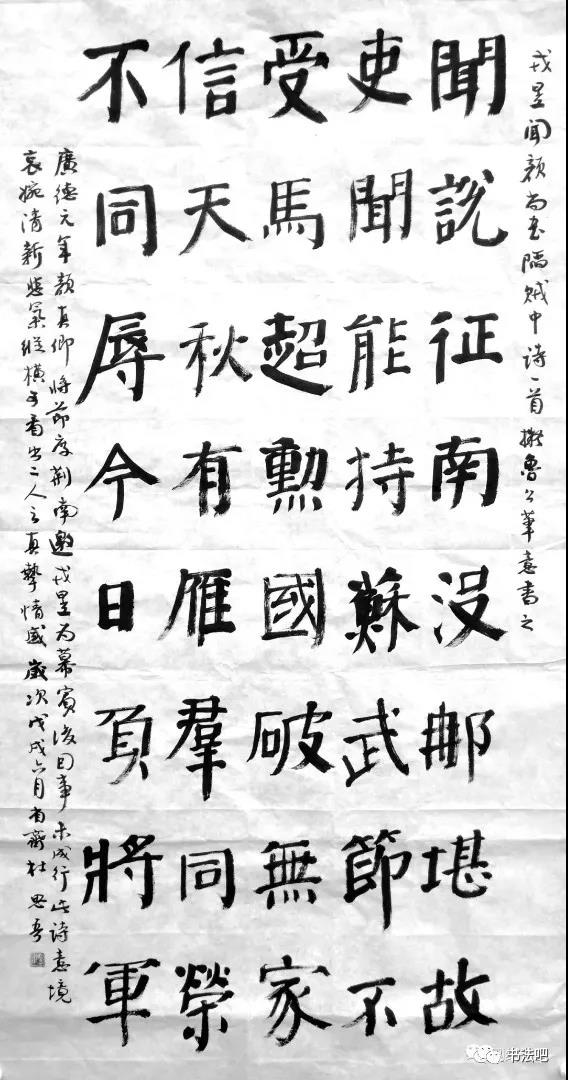 戎昱聞颜尚書陷贼中诗一首擬魯公筆意書之
聞說征南没那堪故
吏聞能持蘇武節不
受馬超勳國破無家
信天秋有雁羣同榮
不同辱今日負將軍
廣德元年颜真卿将節度荆南邀戎昱为幕賓後因事未成行此诗意境
哀婉清新悲氣縱横可看出二人之真摯情感歲次戊戌六月齋杜思吾
书法吧